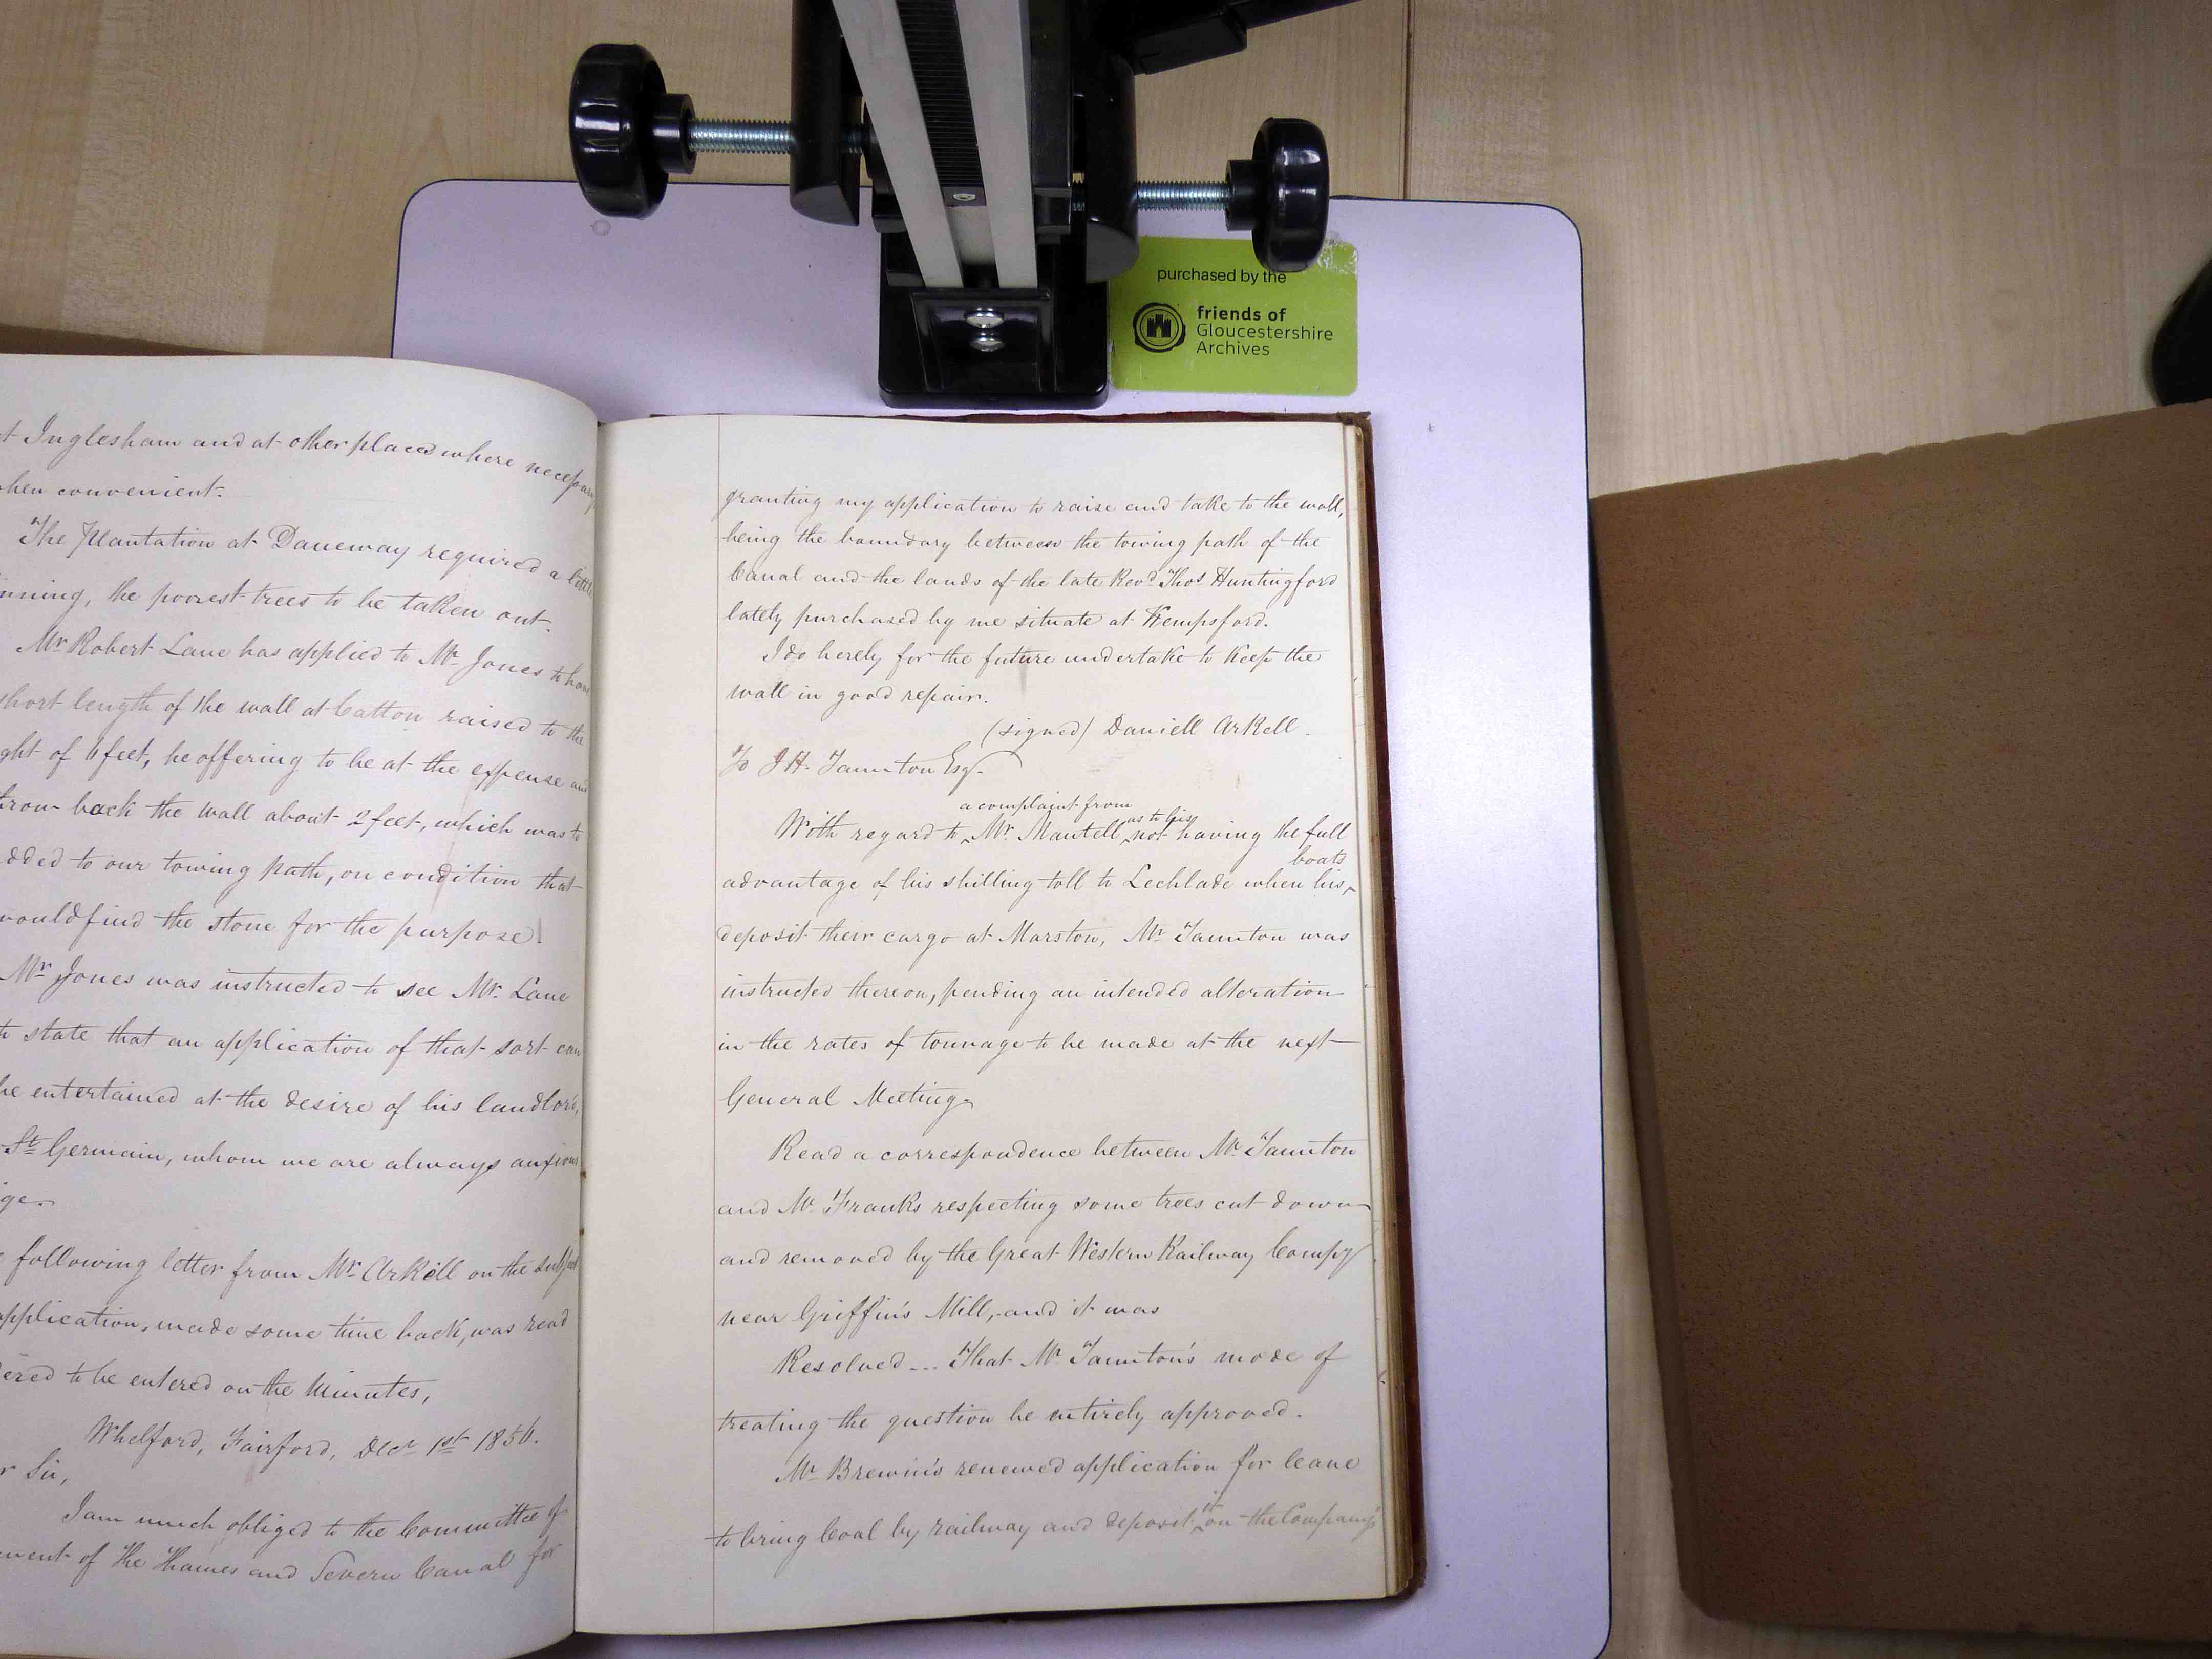 purchased by the
friends of
Gloucestershire
Archives
Inglesham and at other places where necessary
when convenient.
The Plantation at Daneway required a little
the poorest trees to be taken out.
Mr Robert Lane has applied to Mr Jones to have
short length of the wall at Catton raised to the
of 6 feet, he offering to be at the expense and
back the wall about 2 feet, which was to
added to our towing path, on condition that
would find the stone for the purpose.
Mr Jones was instructed to see Mr Lane
to state that an application of that sort can
be entertained at the desire of his landlord,
St Germain, whom we are always anxious
following letter from Mr Arkell on the subject
application, made some time back, was read
to be entered on the Minutes,
Whelford, Fairford, Decr 1st 1856.
Sir,
I am much obliged to the Committee of
of the Thames and Severn Canal for
granting my application to raise and take to the wall,
being the boundary between the towing path of the
Canal and the lands of the late Revd Thos Huntingford
lately purchased by me situate at Kempsford.
I do hereby for the future undertake to keep the
wall in good repair.
(signed) Daniell Arkell.
To J H. Taunton Esq.
With regard to a complaint from Mr Mantell as to his not having the full
advantage of his shilling toll to Lechlade when his boats
deposit their cargo at Marston, Mr Taunton was
instructed thereon, pending an intended alteration
in the rates of tonnage to be made at the next
General Meeting.
Read a correspondence between Mr Taunton
and Mr Franks respecting some trees cut down
and removed by the Great Western Railway Compy
near Griffin's Mill, and it was
Resolved --- That Mr Taunton's mode of
treating the question be entirely approved.
Mr Brewin's renewed application for leave
to bring Coal by railway and deposit it on the Company's